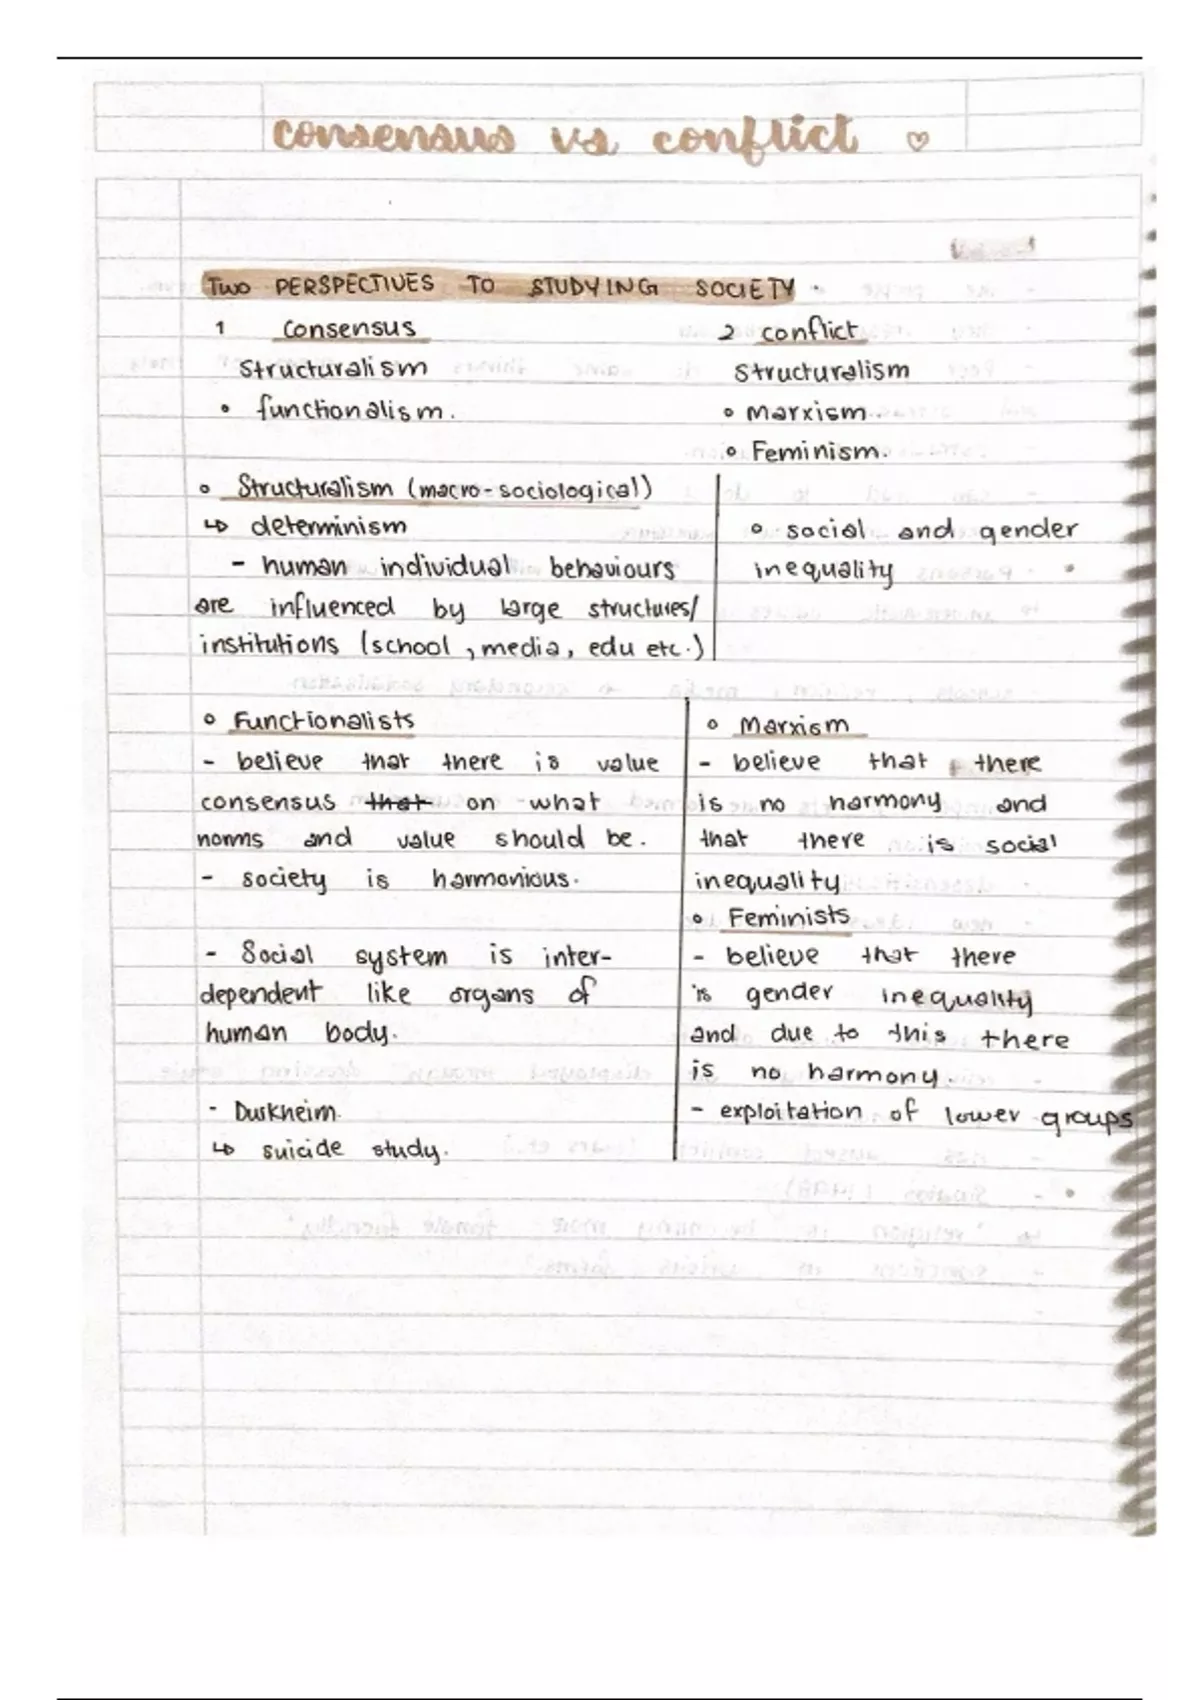 consensus vs conflict ♡
Two PERSPECTIVES TO STUDYING SOCIETY.
1 Consensus
Structuralism
• functionalism.
2 conflict
Structuralism
• Marxism.
• Feminism.
• Structuralism (macro-sociological)
↳ determinism
- human individual behaviours
are influenced by large structures/
institutions (school, media, edu etc.)
• social and gender
inequality
• Functionalists
- believe that there is value
consensus that on what
norms and value should be.
- society is harmonious.
- Social system is inter-
dependent like organs of
human body.
- Durkheim.
↳ suicide study.
• Marxism
- believe that there
is no harmony and
that there is social
inequality
• Feminists
- believe that there
is gender inequality
and due to this there
is no harmony.
- exploitation of lower groups